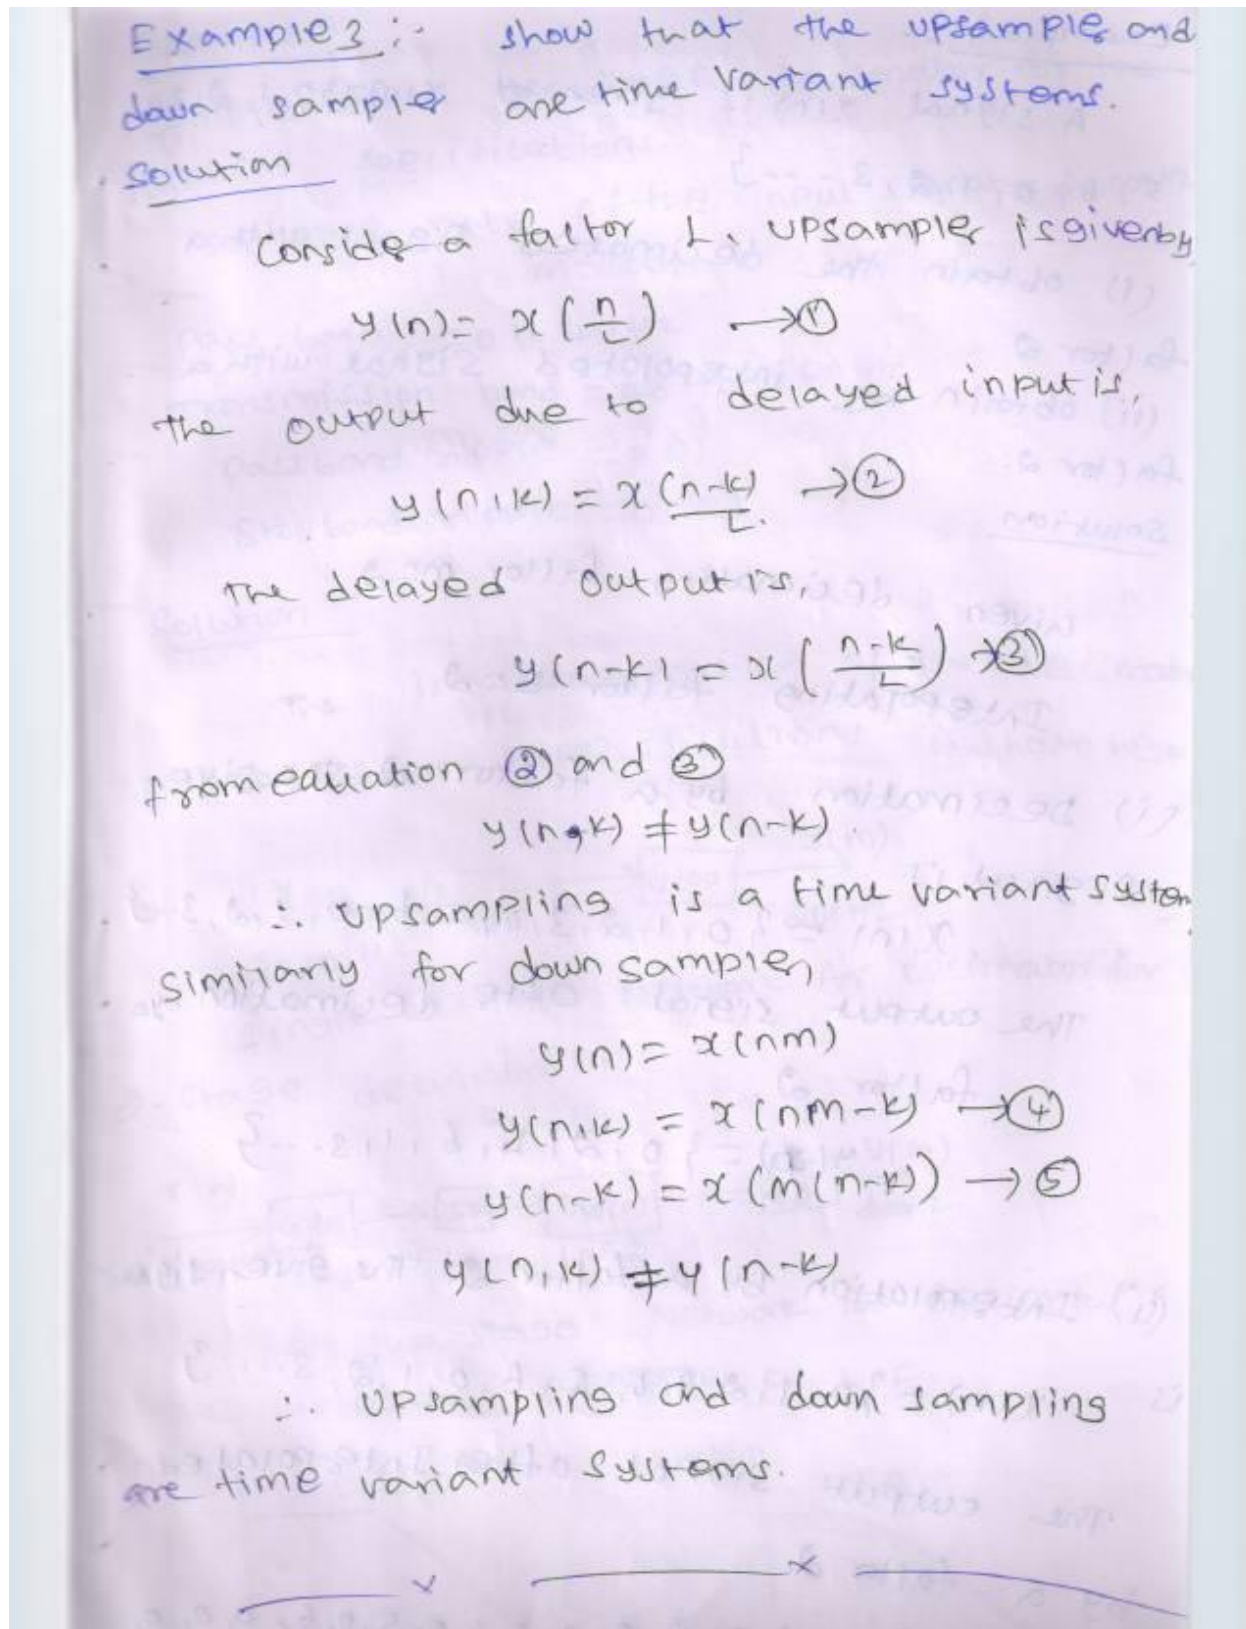 Example 3 :- show that the upsampler and
down sampler are time variant systems.
Solution
Consider a factor L, upsampler is given by
y(n) = x(n/L) → ①
The output due to delayed input is,
y(n,k) = x (n-k)/L. → ②
The delayed output is,
y(n-k) = x((n-k)/L) → ③
from equation ② and ③
y(n,k) ≠ y(n-k)
∴ upsampling is a time variant system
similarly for down sampler,
y(n) = x(nm)
y(n,k) = x(nm-k) → ④
y(n-k) = x(m(n-k)) → ⑤
y(n,k) ≠ y(n-k)
∴ upsampling and down sampling
are time variant systems.